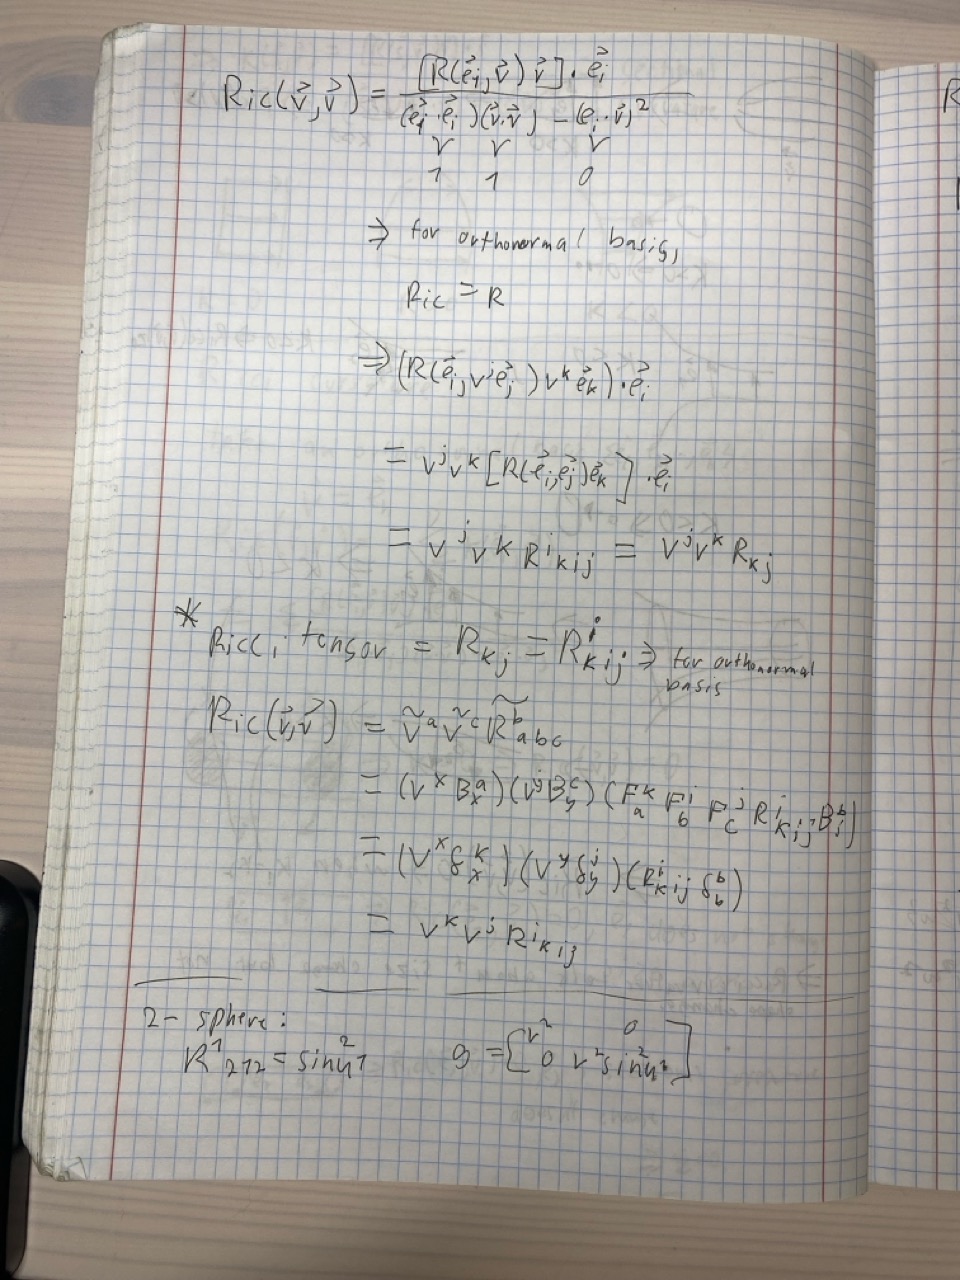 Ric(v⃗,v⃗) = [R(e⃗ᵢ,v⃗) v⃗]·e⃗ᵢ / (e⃗ᵢ·e⃗ᵢ)(v⃗·v⃗) − (eᵢ·v⃗)²
1 1 0
⇒ for orthonormal basis,
Ric = R
⇒ (R(e⃗ᵢ, vʲe⃗ⱼ) vᵏe⃗ₖ)·e⃗ᵢ
= vʲvᵏ[R(e⃗ᵢ,e⃗ⱼ)e⃗ₖ]·e⃗ᵢ
= vʲvᵏ Rⁱₖᵢⱼ = vʲvᵏ Rₖⱼ
* Ricci tensor = Rₖⱼ = Rⁱₖᵢⱼ ⇒ for orthonormal
basis
Ric(v⃗,v⃗) = ṽᵃṽᶜ R̃ᵇ_abc
= (vˣ Bᵃₓ)(vʸ Bᶜ_y)(Fᵏₐ Fⁱ_b Fʲ_c Rⁱₖᵢⱼ Bᵇᵢ)
= (vˣ δᵏₓ)(vʸ δʲ_y)(Rⁱₖᵢⱼ δᵇ_b)
= vᵏvʲ Rⁱₖᵢⱼ
2- sphere:
R¹₂₁₂ = sin²u¹ g = [r² 0
0 r²sin²u¹]